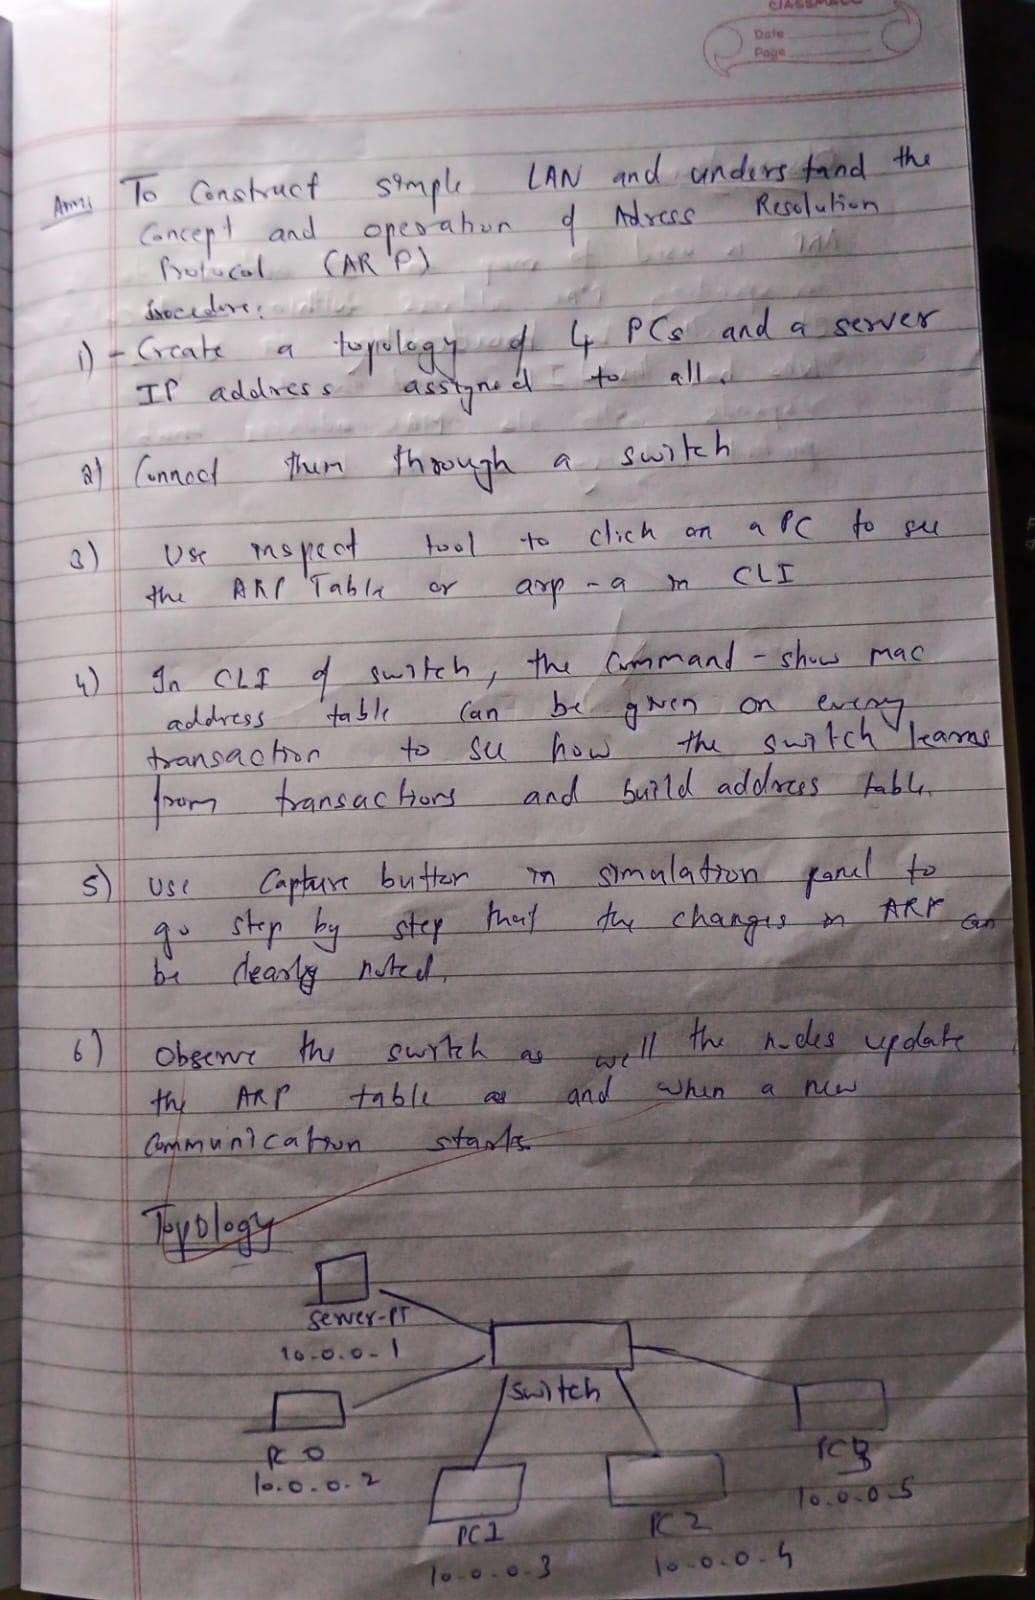 CLASSMATE
Date
Page
Aim: To Construct simple LAN and understand the
Concept and operation of Adress Resolution
Protocol (ARP)
Procedure:
1) - Create a topology of 4 PCs and a server
IP address assigned to all.
2) Connect them through a switch
3) Use inspect tool to click on a PC to see
the ARP Table or arp -a in CLI
4) In CLI of switch, the Command - show mac
address table can be given on every
transaction to see how the switch learns
from transactions and build address table.
5) Use Capture button in simulation panel to
go step by step that the changes in ARP can
be clearly noted.
6) Observe the switch as well the nodes update
the ARP table as and when a new
Communication starts
Topology
Server-PT
10.0.0.1
Switch
PC 0
10.0.0.2
PC1
10.0.0.3
PC 2
10.0.0.4
PC3
10.0.0.5